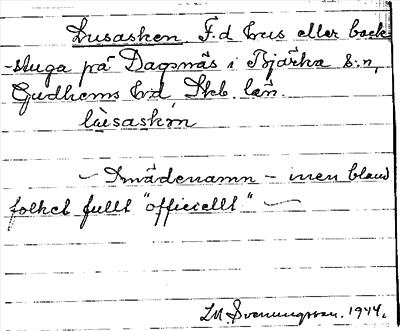 Lusasken F.d. krus eller back
-stuga på Dagsnäs i Bjärka s:n,
Gudhems hd Skb. län.
lùsaskɷn
– Smädenamn – men bland
folket fullt "officiellt" –
LM. Svenungsson. 1944.